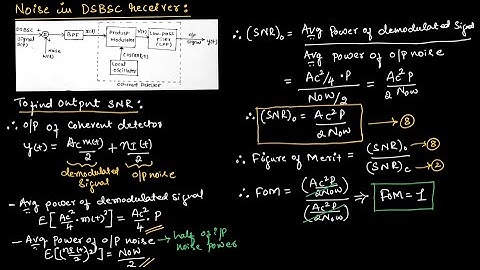 Noise in DSBSC Receiver:
DSBSC signal s(t)
+
Σ
BPF
x(t)
Product Modulator
v(t)
Low-pass filter (LPF)
o/p signal y(t)
noise w(t)
cos(2πfct)
Local Oscillator
Coherent Detector
To find output SNR:
∴ O/P of Coherent detector
y(t) = Ac m(t)/2 + nI(t)/2
demodulated signal
O/P noise
- Avg power of demodulated signal
E[Ac²/4 · m(t)²] = Ac²/4 · P
- Avg Power of O/P noise → half of i/P noise power
E[(nI(t)/2)²] = N0W/2
∴ (SNR)o = Avg Power of demodulated Signal / Avg power of o/P noise
= Ac²/4 · P / N0W/2 = Ac² P / 2 N0W
∴ (SNR)o = Ac² P / 2 N0W → 3
∴ Figure of Merit = (SNR)o → 3 / (SNR)c → 2
∴ FOM = (Ac²P / 2N0W) / (Ac²P / 2N0W) ⇒ FoM = 1